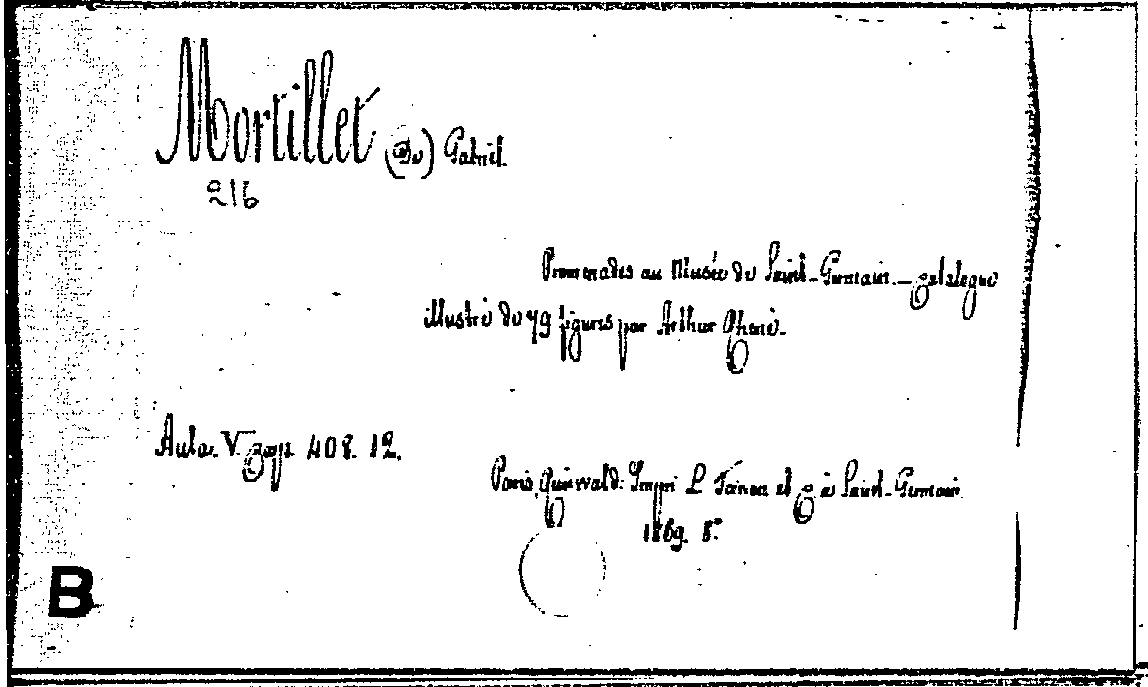 Mortillet (de) Gabriel.
216
Promenades au Musée de Saint-Germain. – Catalogue
illustré de 79 figures par Arthur Rhoné.
Aula. V. Capp. 408. 12.
Paris, Reinwald: Impri L Toinon et C à Saint-Germain.
1869. 8°.
B